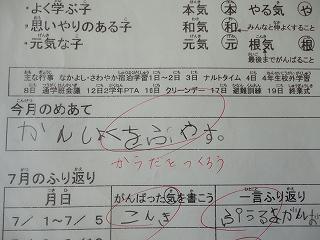 ・よく学ぶ子 本気 本 やる気 や
・思いやりのある子 和気 和 みんなと仲よくすること
・元気な子 元気 元 根気 根
最後までがんばること
主な行事 なかよし・さわやか宿泊学習1日~2日 3日 ナルトタイム 4日 4年生社会
8日 通学班会議 12日2学年PTA 16日 クリーンデー 17日 避難訓練 19日 終業式
今月のめあて
をふやす。
からだをつくろう
7月のふり返り
月日 がんばった気を書こう 一言ふり返り
7/1~7/5 こんき